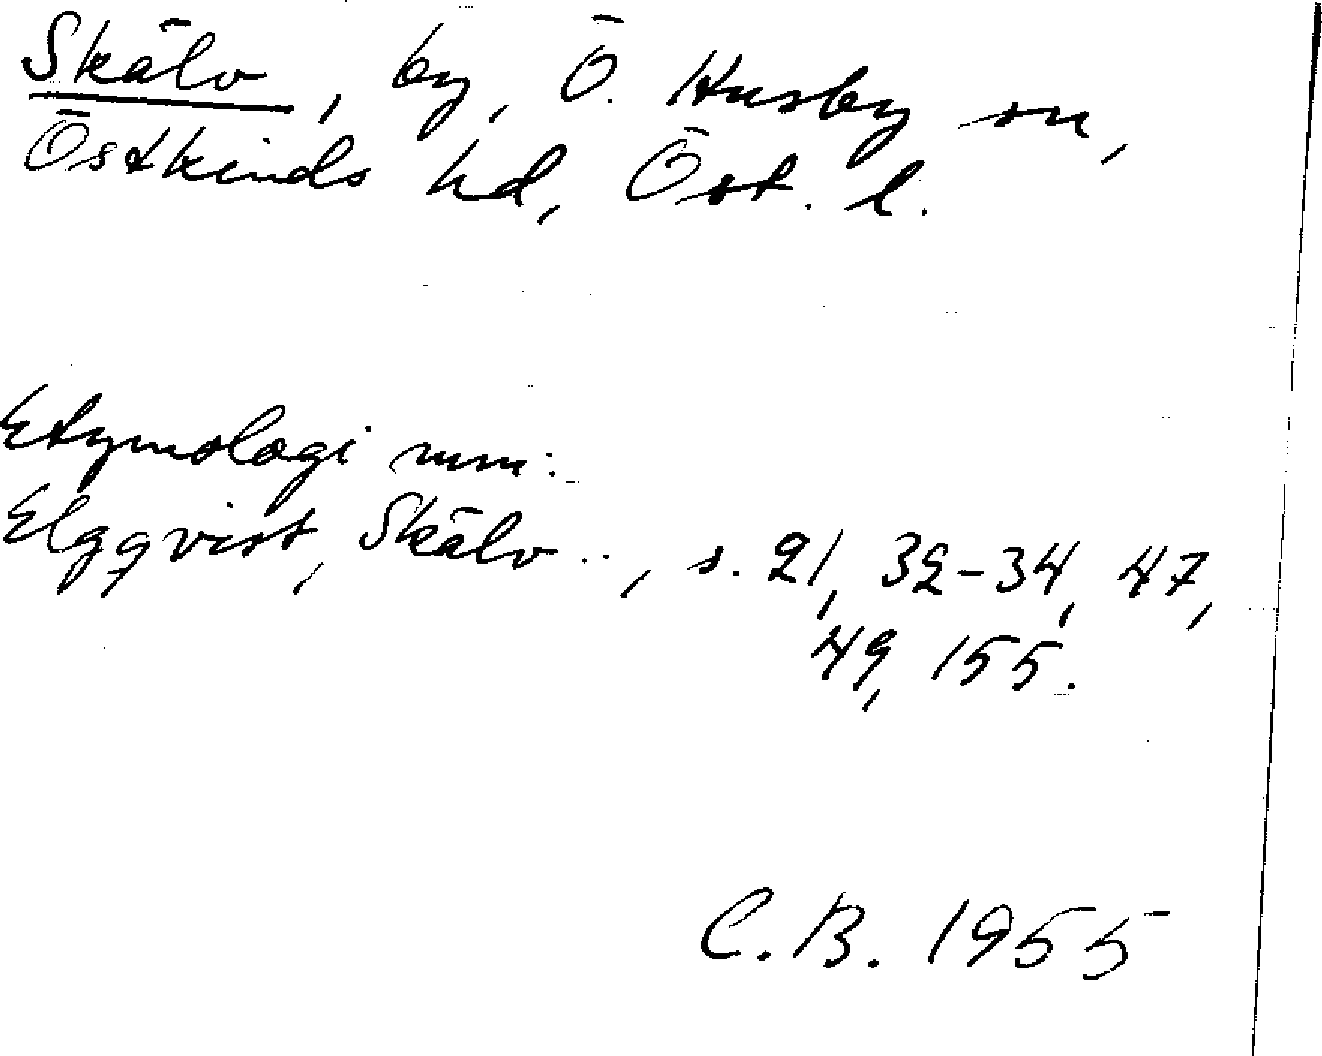 Skälv, by, Ö. Husby sn,
Östkinds hd, Öst. l.
Etymologi mm:
Elgqvist, Skälv .., s. 21, 32-34, 47,
49, 155.
C.B. 1955